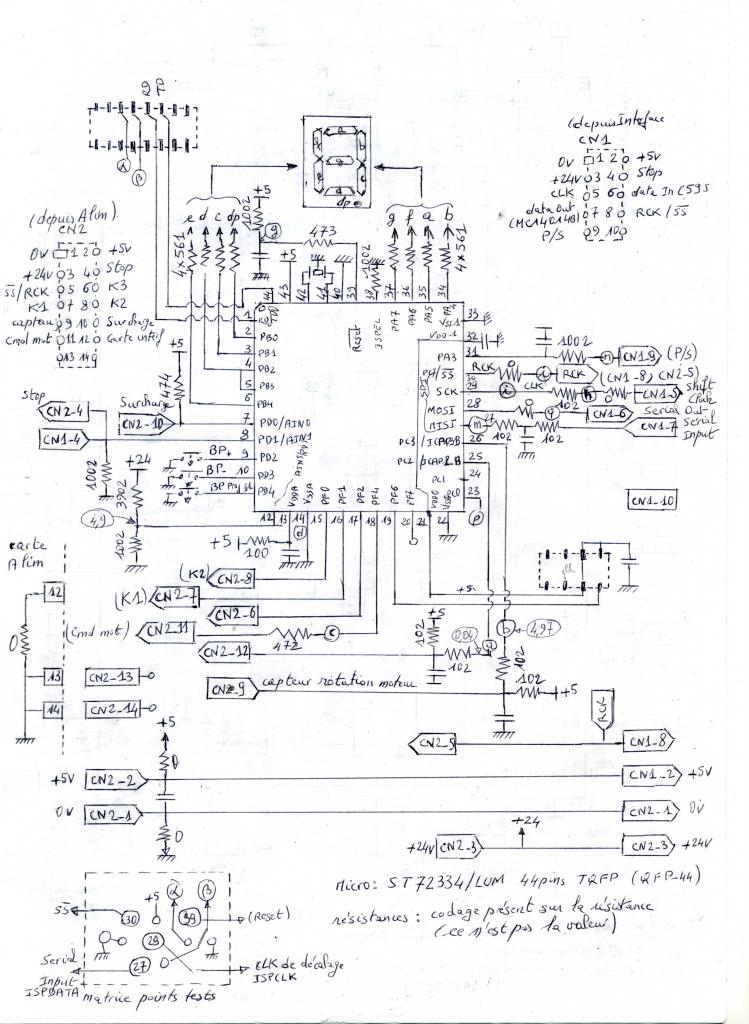 (depuis Interface
CN1
0V 1 2 +5V
+24V 3 4 Stop
CLK 5 6 data In C595
data Out (MC14014B) 7 8 RCK / SS
P/S 9 10
a
b
g
e
d
dp
(depuis Alim)
CN2
0V 1 2 +5V
+24V 3 4 Stop
SS/RCK 5 6 K3
K1 7 8 K2
capteur 9 10 Surcharge
Cmd mot 11 12 Carte intérf
13 14
e d c dp
4x561
1002
+5
g
473
+5
1002
g f a b
4x561
44 43 42 41 40 39 38 37 36 35 34
Reset
ISPSEL
PA7
PA6
PA5
PA4
VSS-1
VDD-1
PA3
SCK
MOSI
MISO
SPI
PC3 / ICAP
PC1
PC0
33
32
31
30
29
28
26
25
24
23
1
2
3
4
5
6
7
8
9
10
PB0
PB1
PB2
PB3
PB4
PD0/AIN0
PD1/AIN1
PD2
PD3
PD4
12 13 14 15 16 17 18 19 20 21 22
VDDA
VSSA
PF0
PF1
PF2
PF4
PF6
PF7
1002
n
CN1-9
(P/S)
RCK
RCK
(CN1-8, CN2-5)
CLK
102
CN1-5
Shift Clock
CN1-6
Serial Out
m
102
102
CN1-7
Serial Input
CN1-10
p
Stop
CN2-4
CN1-4
Surcharge
CN2-10
+5
474
1002
BP+
BP-
+24
3902
4,9
1002
+5
100
d
carte
Alim
12
0
13
14
(K2)
CN2-8
(K1)
CN2-7
CN2-6
(Cmd mot)
CN2-11
472
c
CN2-12
CN2-9
capteur rotation moteur
CN2-13
CN2-14
+5
102
102
0,04
a
+5
b
4,97
102
102
+5
RCK
CN2-5
CN1-8
+5
0
+5V CN2-2
CN1-2 +5V
0V CN2-1
CN2-1 0V
0
+24
+24V CN2-3
CN2-3 +24V
Micro: ST72334/LUM 44pins TQFP (QFP-44)
résistances : codage présent sur la résistance
(ce n'est pas la valeur)
SS
30
+5
39
(Reset)
29
27
Serial Input
ISPDATA
CLK de décalage
ISPCLK
matrice points tests